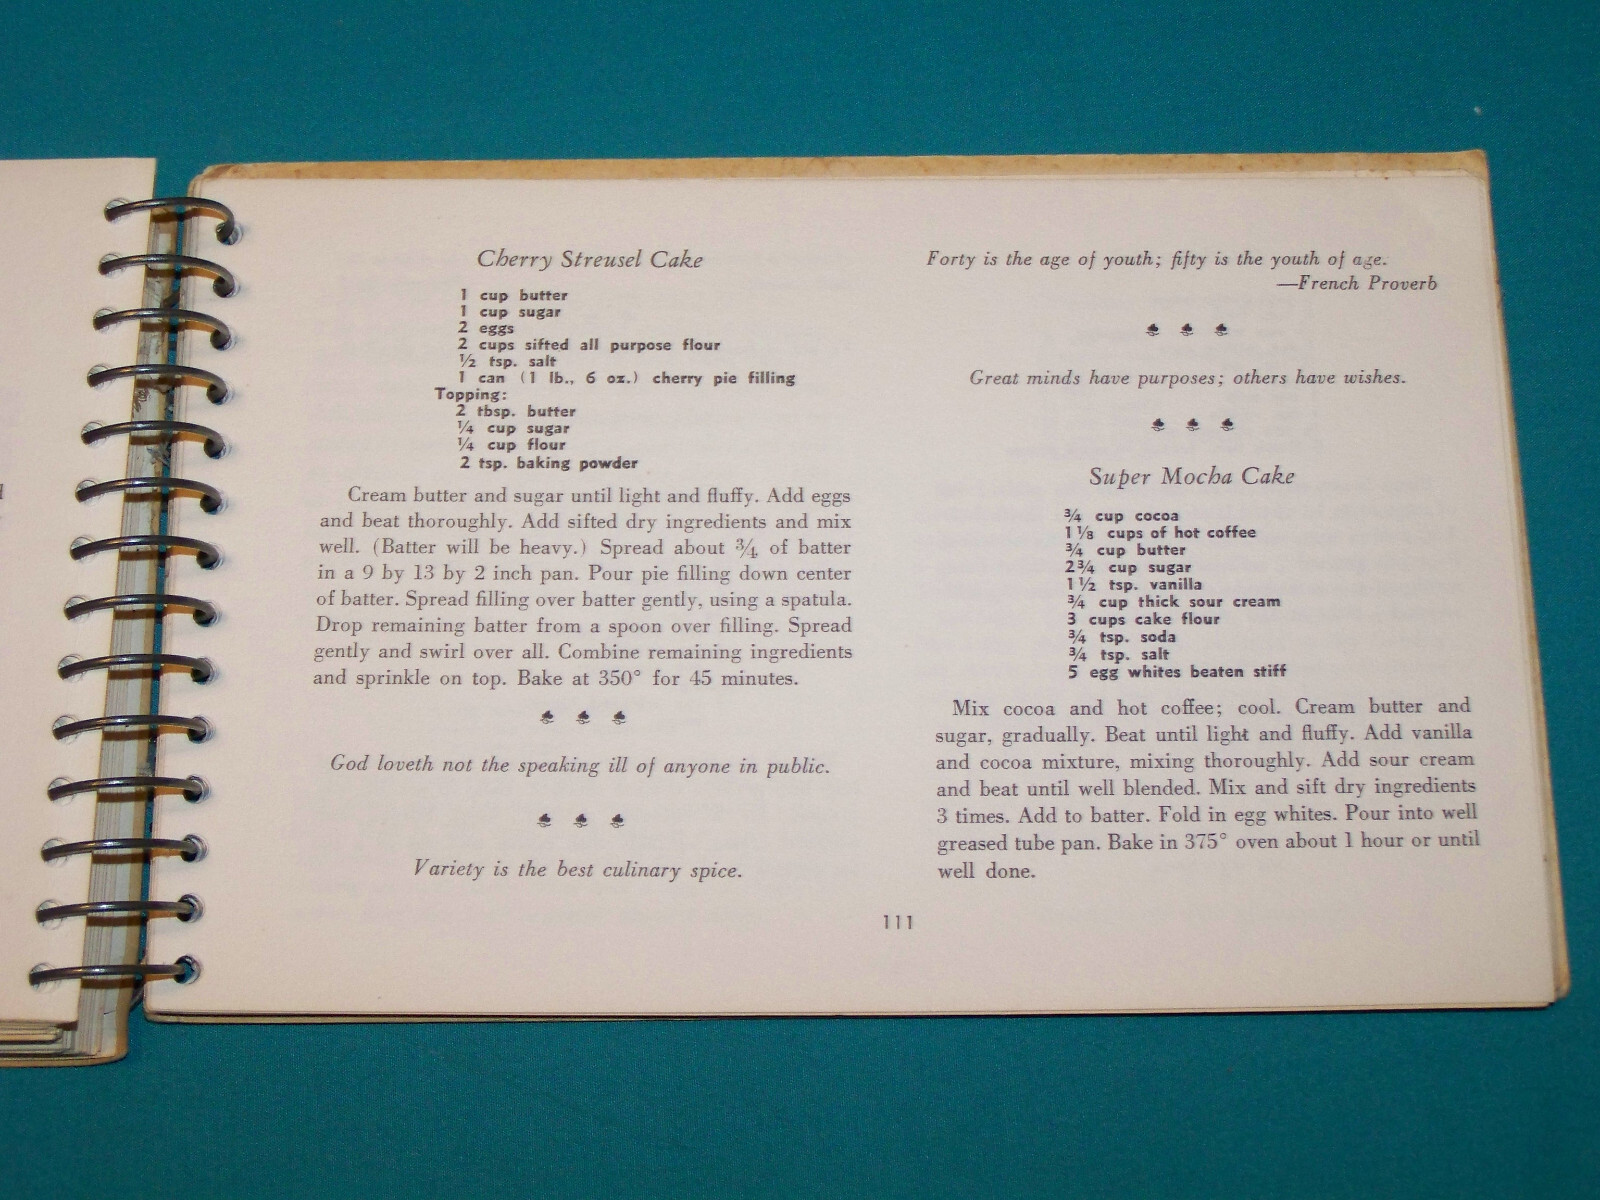 Cherry Streusel Cake
1 cup butter
1 cup sugar
2 eggs
2 cups sifted all purpose flour
½ tsp. salt
1 can (1 lb., 6 oz.) cherry pie filling
Topping:
2 tbsp. butter
¼ cup sugar
¼ cup flour
2 tsp. baking powder
Cream butter and sugar until light and fluffy. Add eggs
and beat thoroughly. Add sifted dry ingredients and mix
well. (Batter will be heavy.) Spread about ¾ of batter
in a 9 by 13 by 2 inch pan. Pour pie filling down center
of batter. Spread filling over batter gently, using a spatula.
Drop remaining batter from a spoon over filling. Spread
gently and swirl over all. Combine remaining ingredients
and sprinkle on top. Bake at 350° for 45 minutes.
God loveth not the speaking ill of anyone in public.
Variety is the best culinary spice.
Forty is the age of youth; fifty is the youth of age.
—French Proverb
Great minds have purposes; others have wishes.
Super Mocha Cake
¾ cup cocoa
1⅛ cups of hot coffee
¾ cup butter
2¾ cup sugar
1½ tsp. vanilla
¾ cup thick sour cream
3 cups cake flour
¾ tsp. soda
¾ tsp. salt
5 egg whites beaten stiff
Mix cocoa and hot coffee; cool. Cream butter and
sugar, gradually. Beat until light and fluffy. Add vanilla
and cocoa mixture, mixing thoroughly. Add sour cream
and beat until well blended. Mix and sift dry ingredients
3 times. Add to batter. Fold in egg whites. Pour into well
greased tube pan. Bake in 375° oven about 1 hour or until
well done.
111